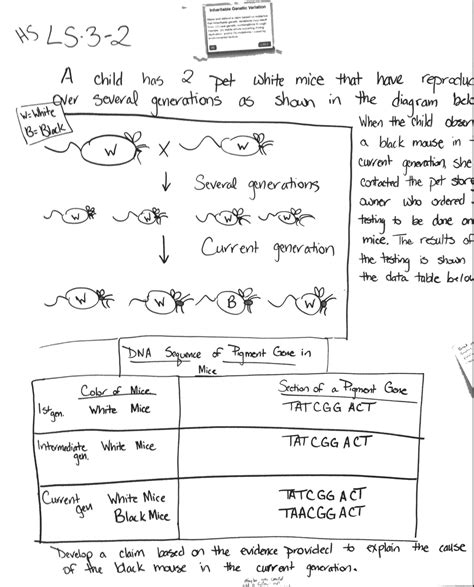 HS LS-3-2
Inheritable Genetic Variation
A child has 2 pet white mice that have reproduc
over several generations as shown in the diagram belo
W=White
B=Black
W X W
Several generations
W W W W
Current generation
W W B W
When the child observ
a black mouse in
current generation, she
contacted the pet store
owner who ordered
testing to be done on
mice. The results of
the testing is shown
the data table below
DNA Sequence of Pigment Gene in
Mice
Color of Mice Section of a Pigment Gene
1st gen. White Mice TATCGG ACT
Intermediate gen. White Mice TATCGG ACT
Current gen White Mice TATCGG ACT
Black Mice TAACGG ACT
Develop a claim based on the evidence provided to explain the cause
of the black mouse in the current generation.